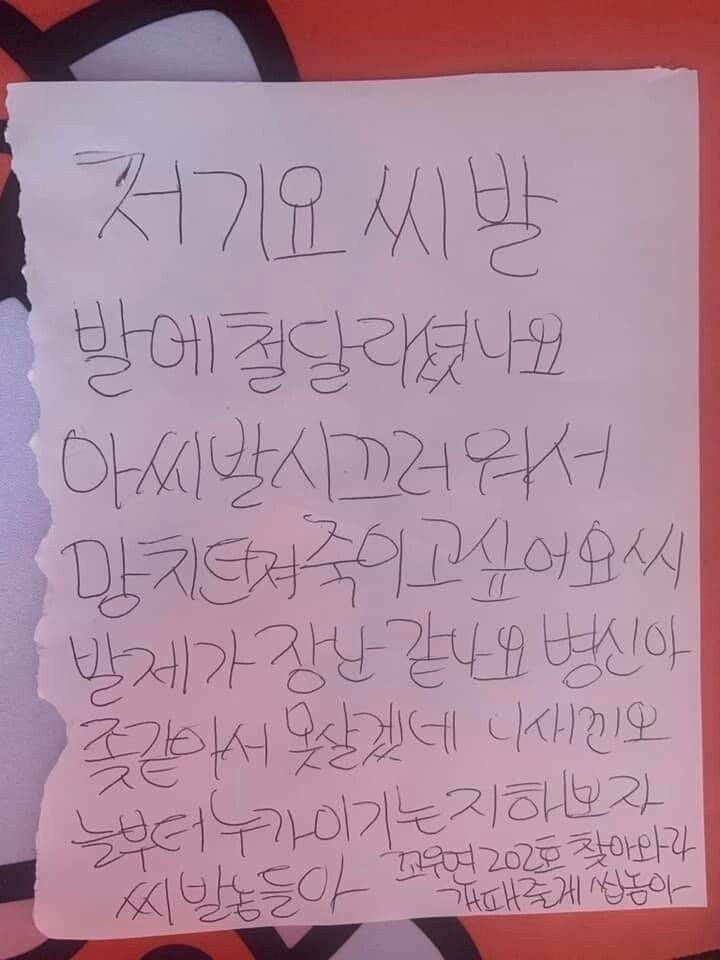 저기요 씨발
발에철달리셨나요
아씨발시끄러워서
망치던져죽이고싶어요씨
발제가 장난 같나요 병신아
좆같아서 못살겠네 니새낀오
늘부터누가이기는지하보자
씨발놈들아
202호 찾아와라
개패줄게 씹놈아